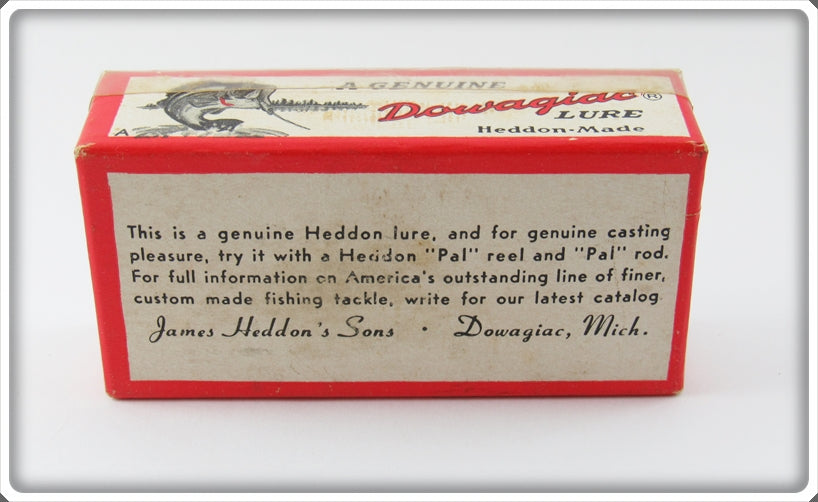 A GENUINE
Dowagiac®
LURE
Heddon-Made
This is a genuine Heddon lure, and for genuine casting
pleasure, try it with a Heddon "Pal" reel and "Pal" rod.
For full information on America's outstanding line of finer,
custom made fishing tackle, write for our latest catalog
James Heddon's Sons · Dowagiac, Mich.